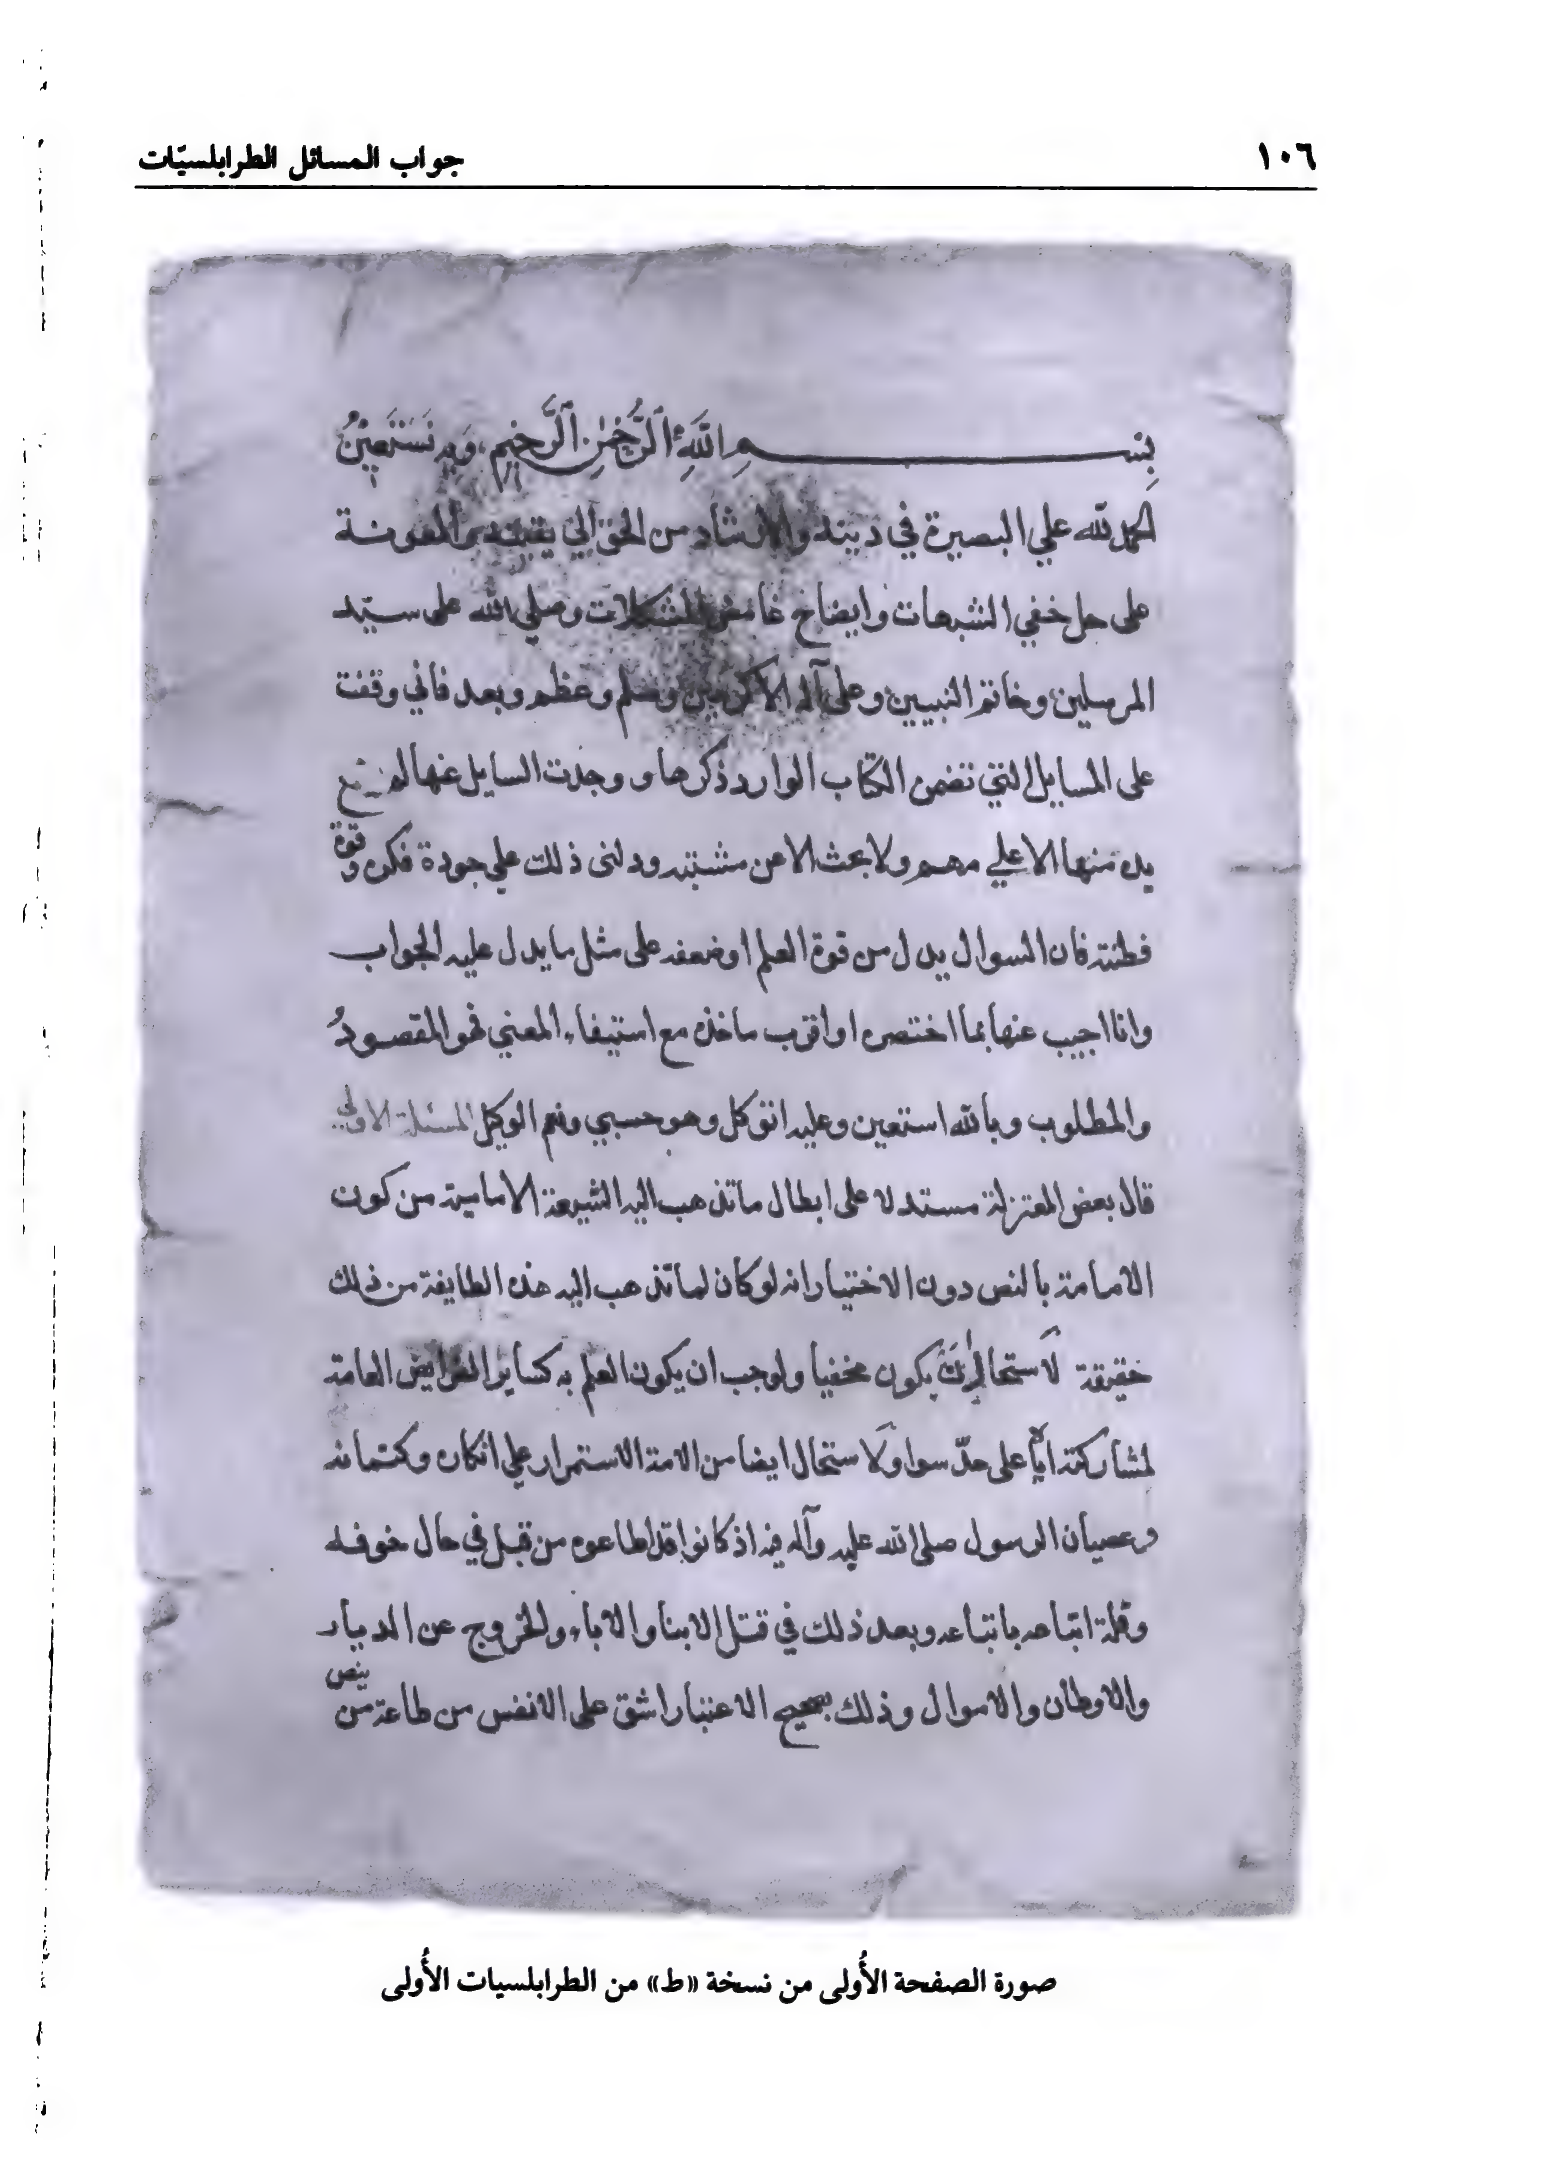 ١٠٦
جواب المسائل الطرابلسيّات
بِسْمِ اللَّهِ ٱلرَّحْمٰنِ ٱلرَّحِيمِ وَبِهِ نَسْتَعِيْنُ
الحمد لله علي البصيرة في دينه والارشاد من الحق الي يقينه والمعونة
على حل خفي الشبهات وايضاح غامض المشكلات وصلي الله على سيّد
المرسلين وخاتم النبيين وعلى آله الأكرمين وسلم وعظم وبعد فأني وقفت
على المسايل التي تضمن الكتاب الوارد ذكرها ووجدت السايل عنها لم يضع
يده منها الا علي مهم ولا بحث الا عن مشتبه ودلنى ذلك علي جودة فكره وقوة
فطنته فان السوال يدل من قوة العلم او ضعفه على مثل ما يدل عليه الجواب
وانا اجيب عنها بما اختصره او اقرب ماخذه مع استيفاء المعني فهو المقصودُ
والمطلوب وبألله استعين وعليه اتوكل وهو حسبي ونعم الوكيل المسئلة الاولي
قال بعض المعتزلة مستدلا على ابطال ما تذهب اليه الشيعة الامامية من كون
الامامة بالنص دون الاختيار انه لو كان لما تذهب اليه هذه الطايفة من ذلك
حقيقة لاستحال ان يكون مخفيا ولوجب ان يكون العلم به كساير الفرايض العامة
لمشاركته اياها على حدّ سوا ولاستحال ايضا من الامة الاستمرار علي انكاره وكتمانه
وعصيان الرسول صلى الله عليه وآله فيه اذ كانوا قد اطاعوه من قبل في حال خوفه
وقلة اتباعه باتباعه وبعد ذلك في قتل الابنا والاباء والخروج عن الديار
والاوطان والاموال وذلك بصحيح الاعتبار اشق على الانفس من طاعة من ينص
صورة الصفحة الأُولى من نسخة «ط» من الطرابلسيات الأُولى